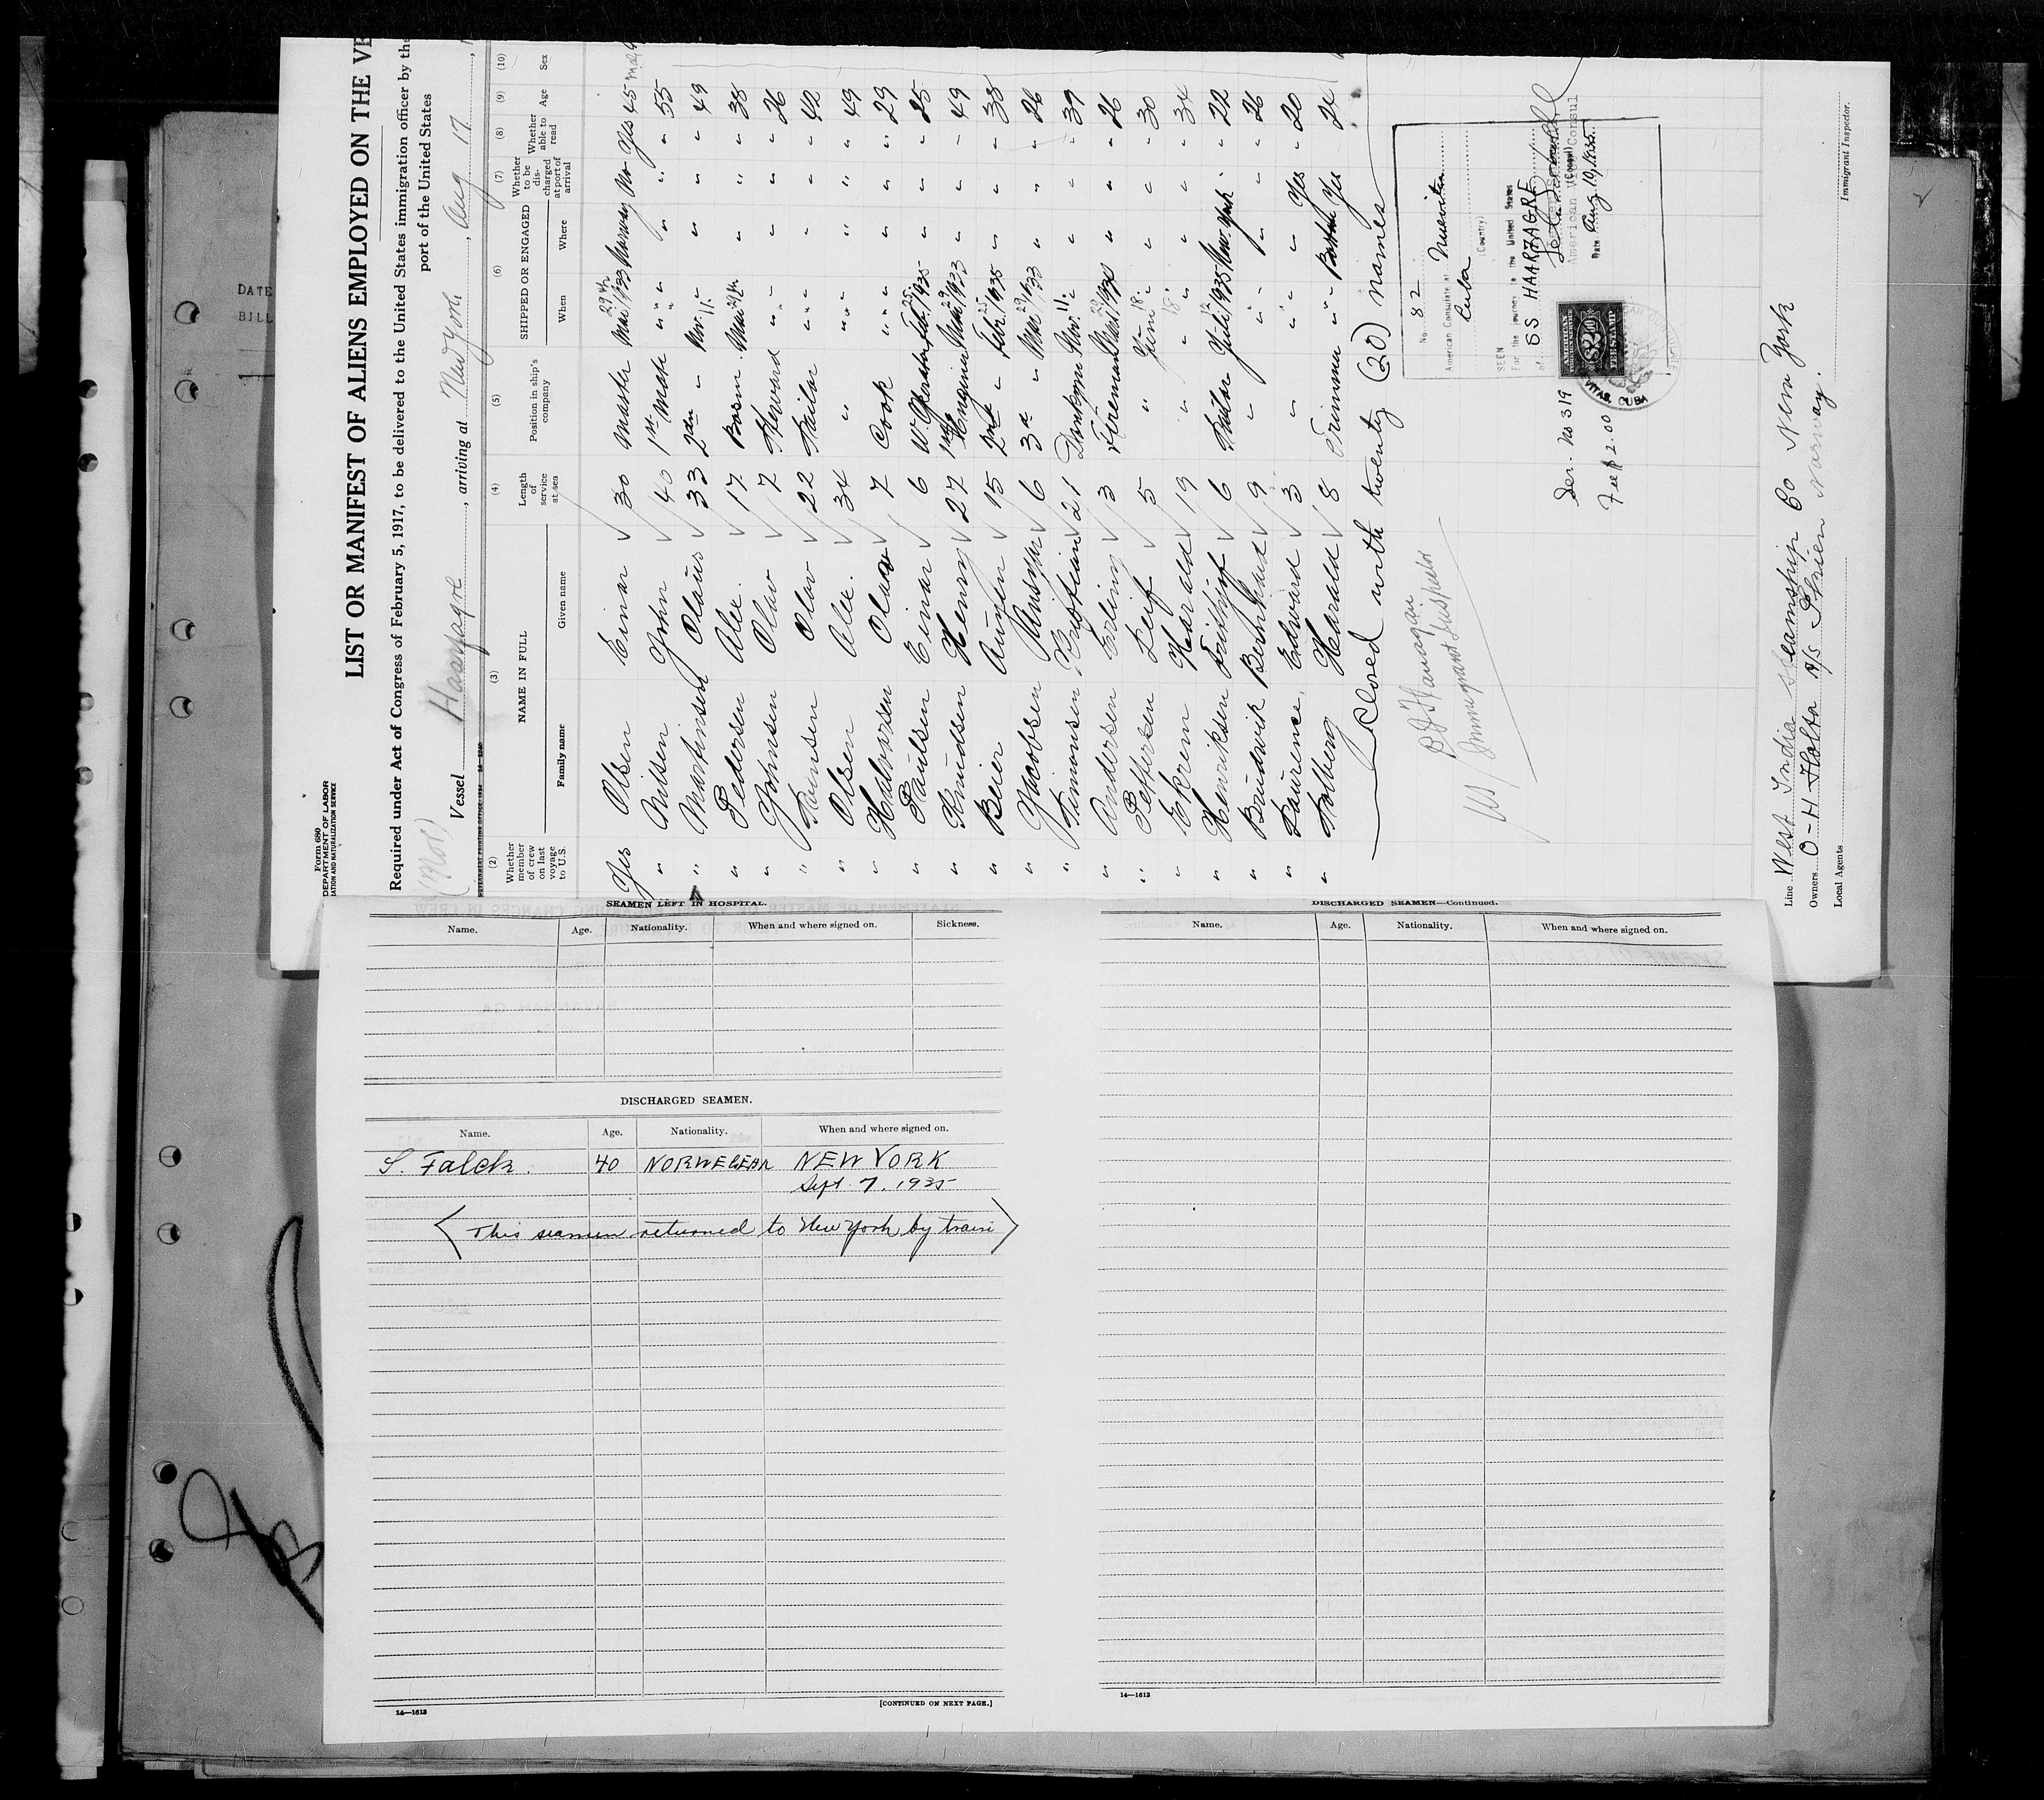 Form 680
DEPARTMENT OF LABOR
LIST OR MANIFEST OF ALIENS EMPLOYED ON THE VE
Required under Act of Congress of February 5, 1917, to be delivered to the United States immigration officer by the
port of the United States
(Nor)
Vessel Haarfagre, arriving at New York, Aug 17,
(2) (3) (4) (5) (6) (7) (8) (9) (10)
Whether member of crew on last voyage to U.S. NAME IN FULL Length of service at sea Position in ship's company SHIPPED OR ENGAGED Whether to be discharged at port of arrival Whether able to read Age Sex
Family name Given name When Where
Yes Olsen Einar √ 30 Master Mai 29th 1933 Norway No Yes 45 male
" Nilsen John √ 40 1st Mate " " " " " 55
" Martinsen Olaus √ 33 2dn " Nv. 11. " " " " 49
" Pedersen Alex. √ 17 Bosn Mai 29th " " " 38
" Johnsen Olav √ 7 Steward " " " " " 26
" Hansen Olav √ 22 Sailor " " " " " 42
" Olsen Alex. √ 34 " " " " " " 49
" Halvorsen Olav √ 7 Cook " " " " " 29
" Paulsen Einar √ 6 W. Operator Feb. 25. 1935 " " " 25
" Knudsen Henry √ 27 1st Engineer Mai 29 1933 " " " 49
" Beier √ 15 2nd " Febr. 25 1935 " " " 38
" Jacobsen √ 6 3d " Mai 29th 33 " " " 26
" Simonsen Kristian √ 21 Donkeym Nv. 11. " " " " 39
" Andersen Erling √ 3 Fireman " " " 26
" Leif √ 5 " Juni 18. " " " 30
" Ekrem Harald √ 19 " " 18. " " " 34
" Henriksen Fridthjof √ 6 Sailor Juli 12 1935 New-York " " 22
" Brudwik Bernhard √ 9 " " " " " " 26
" Laurence Edward √ 3 " " " " Yes " 20
" Holberg Harald √ 8 Trimmer " " Boston Yes " 24
Closed with twenty (20) names
Immigrant Inspector
No. 82
American Consulate at Nuevitas
Cuba
(Country)
SEEN
For the journey to the United States
of SS HAARFAGRE
American Vice Consul
(Consul)
Date Aug 19, 1935.
AMERICAN
$2.00
FEE STAMP
VITAS, CUBA
Ser. No 319
Fee $2.00
Line West India Steamship Co New York
Owners O-H-Holta A/S Skien Norway.
Local Agents
Immigrant Inspector.
DATE
BILL
SEAMEN LEFT IN HOSPITAL.
Name. Age. Nationality. When and where signed on. Sickness.
DISCHARGED SEAMEN.
Name. Age. Nationality. When and where signed on.
S. Falck. 40 NORWEGEAN NEW YORK
Sept 7. 1935
<This seaman returned to New York by train>
[CONTINUED ON NEXT PAGE.]
14—1613
DISCHARGED SEAMEN—Continued.
Name. Age. Nationality. When and where signed on.
14—1613